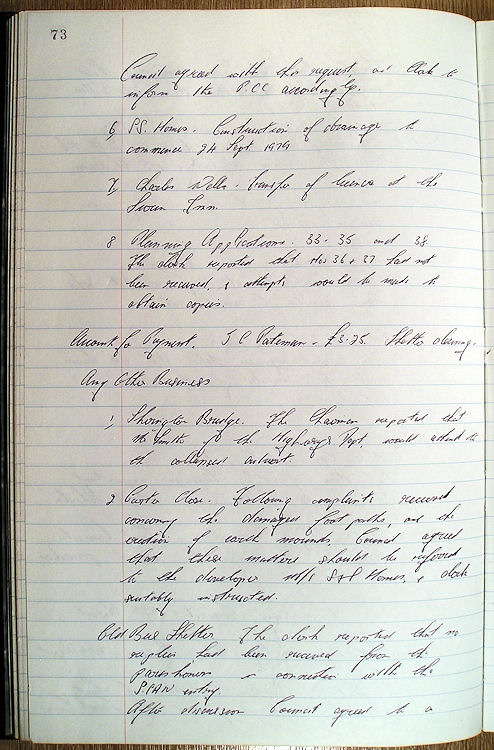 73
Council agreed with this request, and Clerk to
inform the P.CC accordingly.
6, P.S. Homes. Construction of drainage to
commence 24 Sept 1979
7, Charles Wells. Transfer of licence at the
Swan Inn.
8 Planning Applications. 33-35 and 38.
The clerk reported that Nos 36 + 37 had not
been received, & attempts would be made to
obtain copies.
Accounts for Payment. S C Pateman - £5.25. Shelter cleaning.
Any Other Business
1, Bridge. The Chairman reported that
Mr Smith of the Highways Dept, would attend to
the collapsed culvert.
2 Close. Following complaints received
concerning the damaged foot paths, and the
erection of earth mounds, Council agreed
that these matters should be referred
to the developer M/s S&P Homes, & clerk
suitably instructed.
Old Bus Shelter The clerk reported that no
replies had been received from the
parishioners in connection with the
entry.
After discussion Council agreed to a